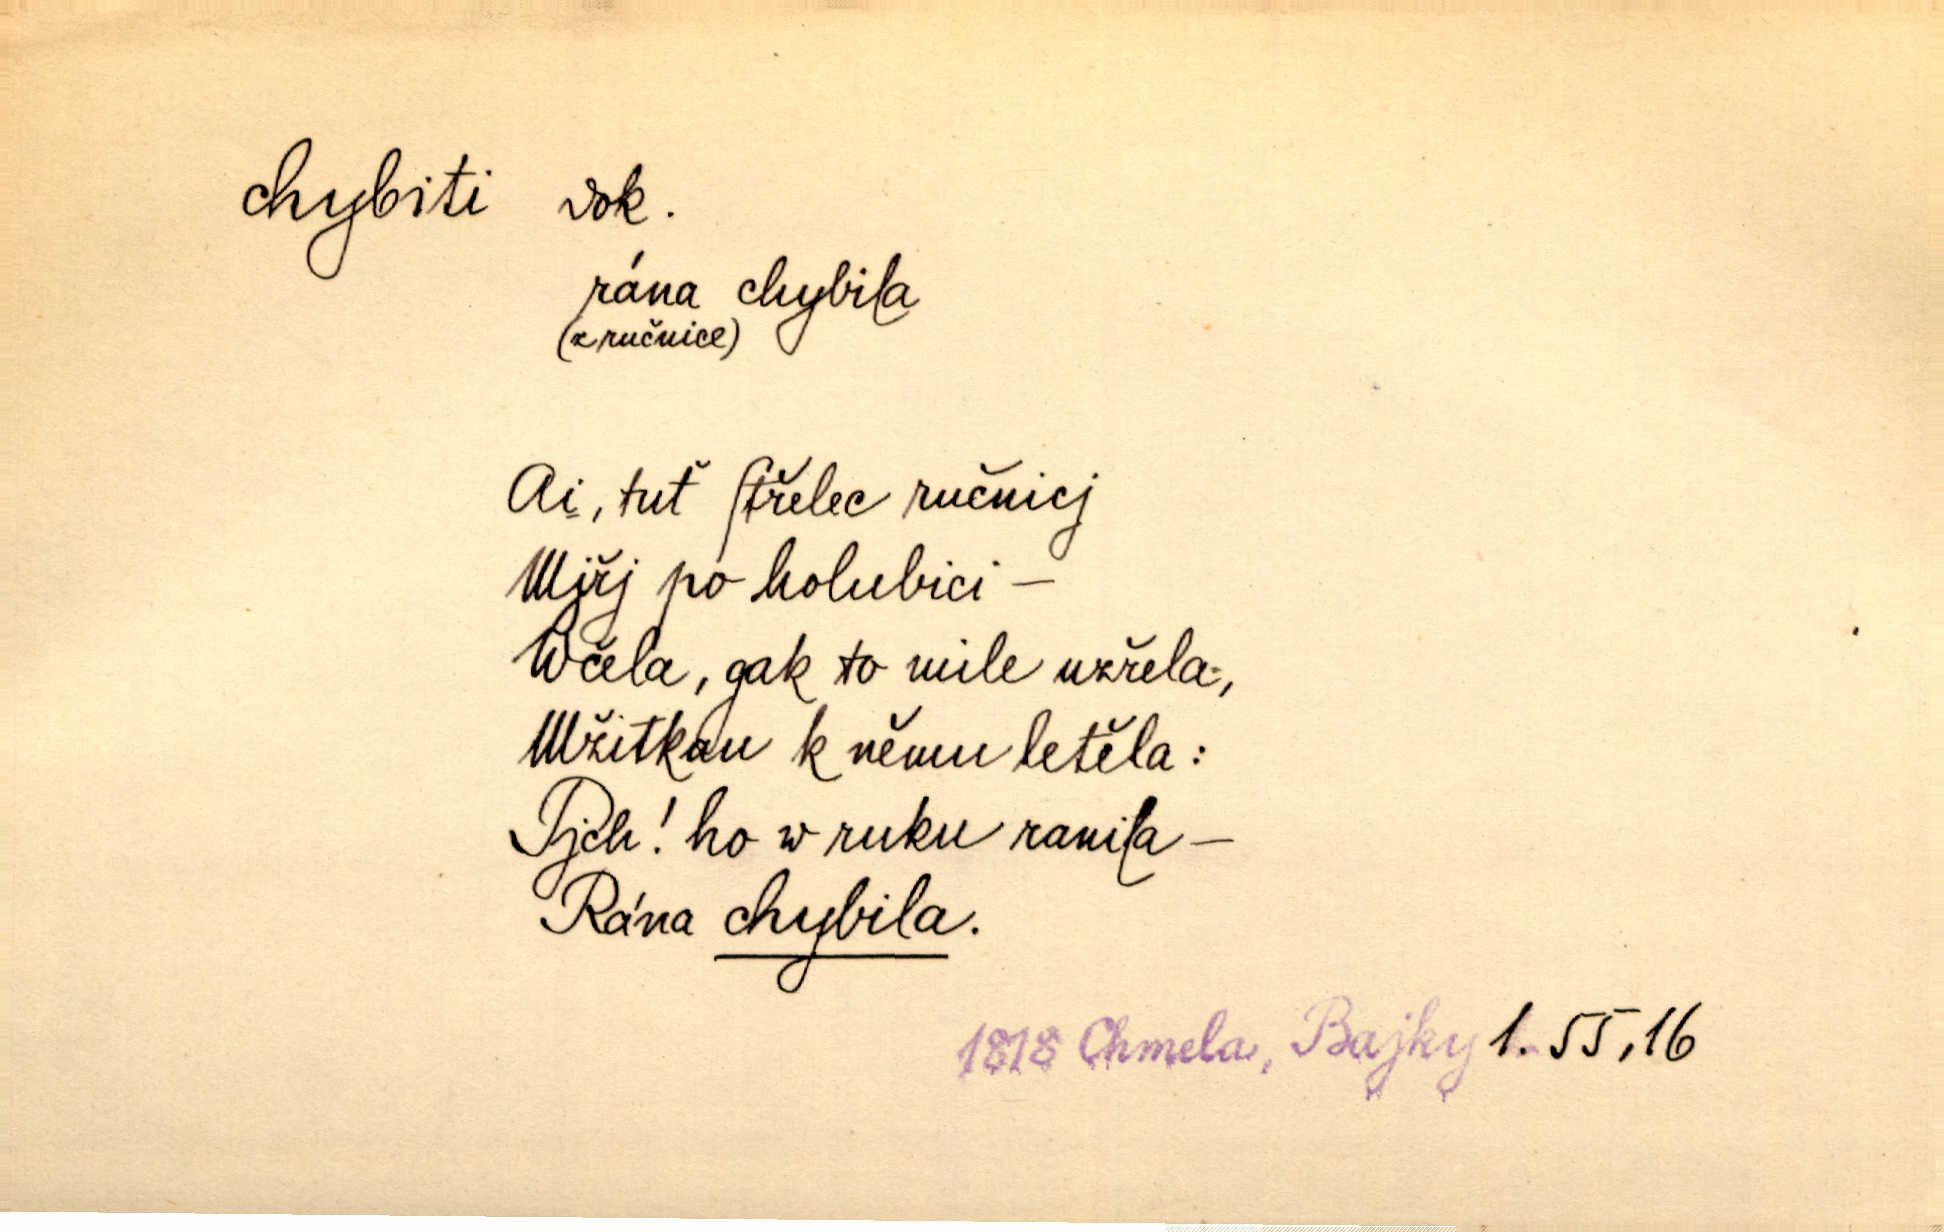 chybiti dok.
rána chybila
(z ručnice)
Ai, tuť střelec ručnicj
Mjřj po holubici —
Wčela, gak to mile uzřela,
Mžitkau k němu letěla:
Pjch! ho w ruku ranila —
Rána chybila.
1818 Chmela, Bajky 1. 55,16